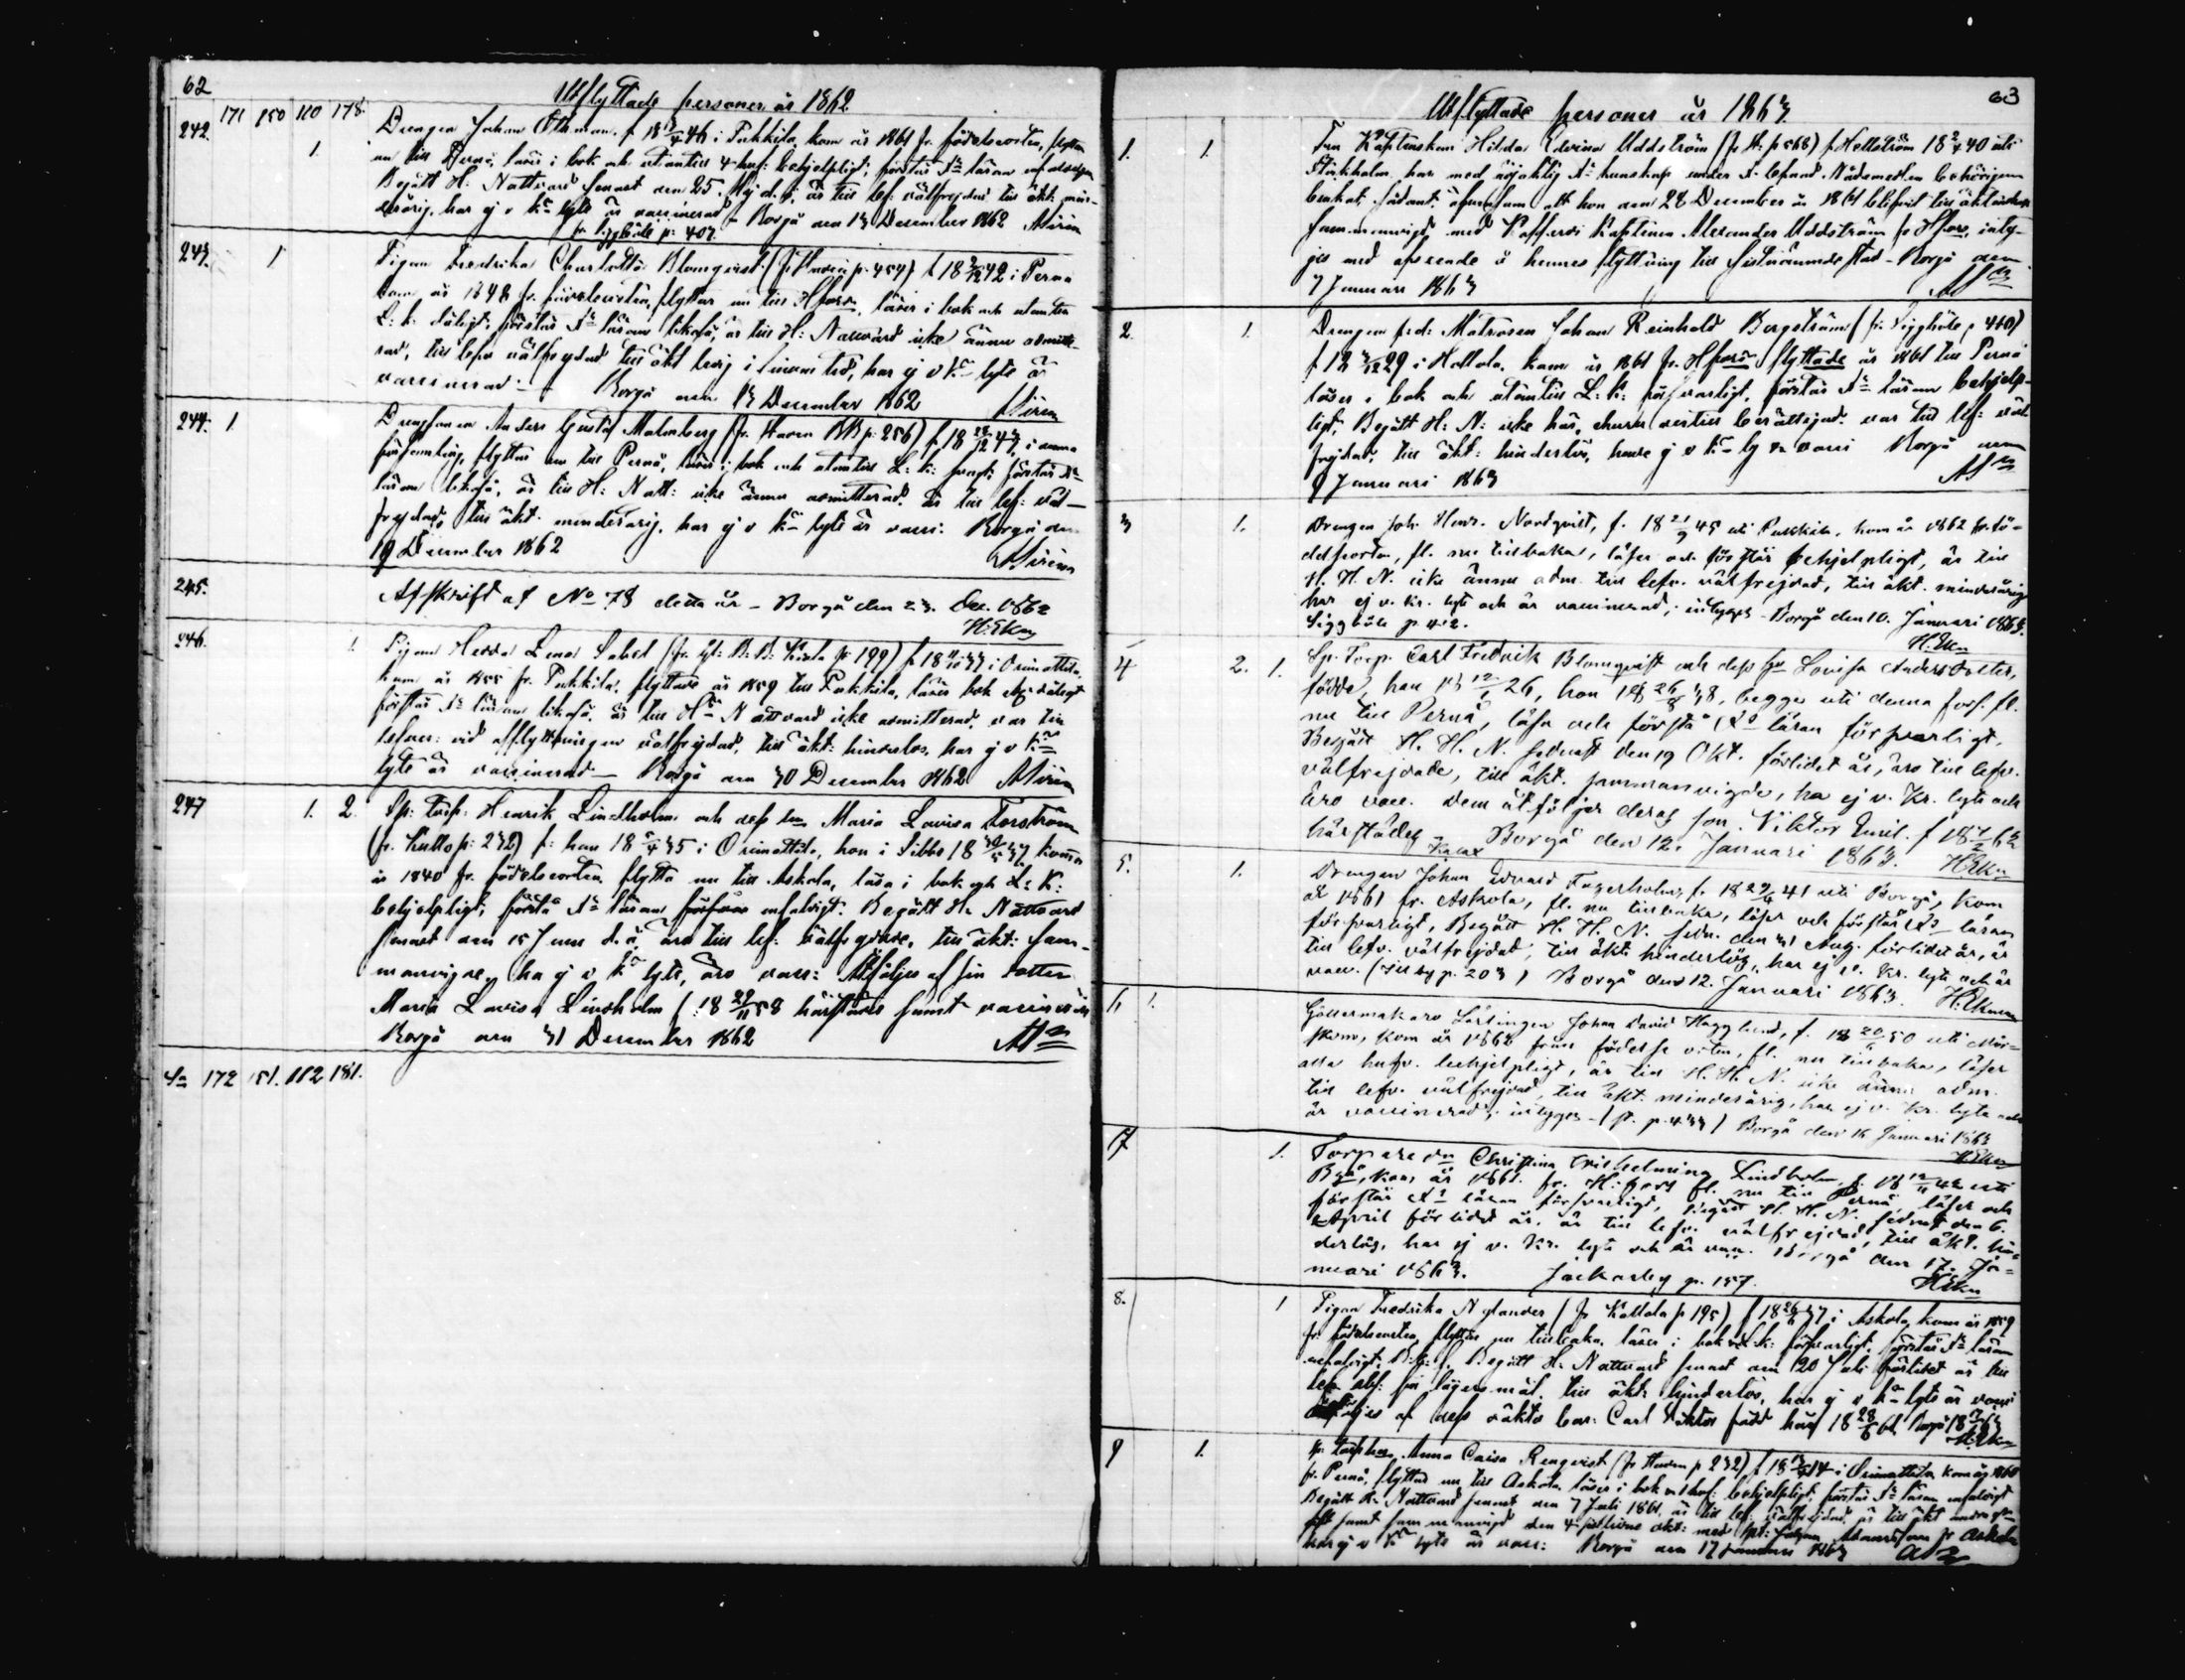 62
Utflyttade personer år 1862
171 150 110 178.
242. 1. Drengen Johan Öhman f. 18 13/4 46 i Pukkila, kom år 1861 fr. födelseorten, flyttar
nu till Pernå, läser i bok och utantill 4 huf: behjelpligt, förstår Xns läran enfaldigt
Begått H: Nattvard senast den 25. Maj d. å, är till lef: välfrejdad till äkt: min-
derårig, har ej v. kr. lyte är vaccinerad - Borgå den 13 December 1862 Sirén
fr. Siggböle p: 407.
243. 1 Pigan Fredrika Charlotta Blomqvist (fr. p. 454) f. 18 42 i Pernå
kom år 1848 fr. födelseorten, flyttar nu till Hfors, läser i bok och utantill
L: k: dåligt, förstår Xns läran likaså, är till H: Nattvard icke ännu admitte-
rad, till lefv. välfrejdad till äkt ledig i sinom tid, har ej v kr. lyte är
vaccinerad - Borgå den 13 December 1862 Sirén
244. 1 Drengsonen Anders Gustaf Malmberg (fr. BB p: 256) f. 18 28/12 47, i denna
församling, flyttar nu till Pernå, läser i bok och utantill L: k: svagt, förstår Xns
läran likaså, är till H: Natt: icke ännu admitterad. är till lef: väl-
frejdad, till äkt. minderårig, har ej v kr. lyte är vacci: Borgå den
19 December 1862 Sirén
245. Afskrift af No 78 detta år - Borgå den 23. Dec. 1862
H: Ekm
246. 1 Pigan Hedda Lena (fr. B: B: p 199) f. 18 33 i Orimattila,
kom år 1855 fr. Pukkila, flyttade år 1859 till Pukkila, läser bok dåligt
förstår Xns läran likaså. är till H: Nattvard icke admitterad. var till
lefver: vid afflyttningen välfrejdad, till äkt: hinderlös, har ej v kr.
lyte är vaccinerad - Borgå den 30 December 1862 Sirén
247 1. 2. Sp: torp: Henrik Lindholm och dess hu Maria Lovisa Forström
(fr. Kullo p: 232) f: han 18 5/4 35 i Orimattila, hon i Sibbo 18 30/5 37 komne
år 1840 fr. födelseorten flytta nu till Askola, läsa i bok och L: K:
behjelpligt, förstå Xns läran enfaldigt. Begått H: Nattvard
senast den 15 Juni d. å, äro till lef: välfrejdade, till äkt: sam-
manvigde, ha ej v kr lyte, äro vacc: Åtföljes af sin dotter
Maria Lovisa Lindholm f. 18 29/11 58 härstädes samt vaccinerad
Borgå den 31 December 1862
Sa 172 151. 112 181.
63
Utflyttade personer år 1863
1. 1. Fru Kaptenskan Hilda Edvina Uddström (fr St: p 568) f. Hellström 18 40 uti
Stockholm har med nöjaktig Xns kunskap under X. lefnad. Nådemedlen behörigen
brukat, sådant, äfvensom att hon den 28 December år 1861 blifvit till äktenskap
sammanvigd med Kofferdi Kaptenen Alexander Uddström fr Hfors, inty-
gas med afseende å hennes flyttning till sistnämnde stad - Borgå den
7 Januari 1863
2. 1. Drengen f.d: Matrosen Johan Reinhold Bergström (fr. Siggböle p 410)
f. 18 3/12 29 i Hollola, kom år 1861 fr. Hfors flyttade år 1861 till Pernå
läser i bok och utantill L: k: försvarligt, förstår Xns läran behjelp-
ligt, Begått H: N: icke här, ehuru dertill berättigad. var till lef: väl-
frejdad, till äkt: hinderlös, hade ej v kr. ly & vacci Borgå den
9 Januari 1863
3 1. Drengen Joh. Henr. Nordqvist, f. 18 21/9 45 uti Pukkila, kom år 1862 fr. fö-
delseorten, fl. nu tillbaka, läser och förstår behjelpligt, är till
H. H. N. icke ännu adm. till lefv. välfrejdad, till äkt. minderårig
har ej v. kr. lyte och är vaccinerad, intygas - Borgå den 10. Januari 1863.
Siggböle p. 412. H. Ekm
4 2. 1. Sp. Torp. Carl Fredrik Blomqvist och dess hu Lovisa Andersdotter,
födde, han 18 12/1 26, hon 18 26/8 38, begge uti denna förs. fl.
nu till Pernå, läsa och förstå Xns läran försvarligt,
Begått H. H. N. sednast den 19 Okt. förlidet år, äro till lefv.
välfrejdade, till äkt. sammanvigde, ha ej v. Kr. lyte och
äro vacc. Dem åtföljer deras son. Viktor Emil. f 18 62
härstädes Borgå den 12. Januari 1863. HEkm
5. 1. Drengen Johan Edvard Fagerholm, f. 18 29/4 41 uti Borgå, kom
år 1861 fr. Askola, fl. nu tillbaka, läser och förstår Xns läran
försvarligt, Begått H. H. N. sedn. den 31 Aug. förlidet år, är
till lefv. välfrejdad, till äkt. hinderlös, har ej v. Kr. lyte och är
vacc. p. 203) Borgå den 12. Januari 1863. H. Ekman
6 1. Lärlingen Johan David Hagglund, f. 18 20 50 uti Mör-
skom, kom år 1862 från födelse orten, fl. nu tillbaka, läser
alla hufv. behjelpligt, är till H. H. N. icke ännu adm.
till lefv. välfrejdad, till äkt. minderårig, har ej v. Kr. lyte och
är vaccinerad; intygas - (p. 433) Borgå den 16 Januari 1863
HEkm
7 1. Torparedn Christina Wilhelmina Lindholm, f. 18 12/11 42 uti
Bgå, kom år 1861. fr. H:fors fl. nu till Pernå, läser och
förstår Xns läran försvarligt, begått H. H. N. sednast den 6.
April förlidet år. är till lefv. välfrejdad, till äkt. hin-
derlös, har ej v. Kr. lyte och är vacc. Borgå den 17. Ja-
nuari 1863. Jackarby p. 157. HEkm
8. 1 Pigan Fredrika Nylander (fr Kallola p 195) f 18 26 37 i Askola, kom år 1859
fr. födelseorten, flyttar nu tillbaka, läser i bok och L: k: försvarligt, förstår Xns läran
enfaldigt. Begått H. Nattvard senast den 20 Juli förlidet år till
lef. abs: för lägersmål, till äkt: hinderlös, har ej v kr lyte är vacci
åtföljes af dess oäkta barn: Carl Viktor född här 18 28/6 61, Borgå 18 63
HEkm
9 1. Anna Caisa Renqvist (fr p 232) f 18 14 i Orimattila kom år 1860
fr. Pernå, flyttad nu till Askola, läser i bok och huf: behjelpligt, förstår Xns läran enfaldigt
Begått H. Nattvard senast den 7 Juli 1861, är till lef: välfrejdad, är till äkt
samt sammanvigd den 4 med fr Askola
har ej v kr lyte är vacc: Borgå den 17 Januari 1863